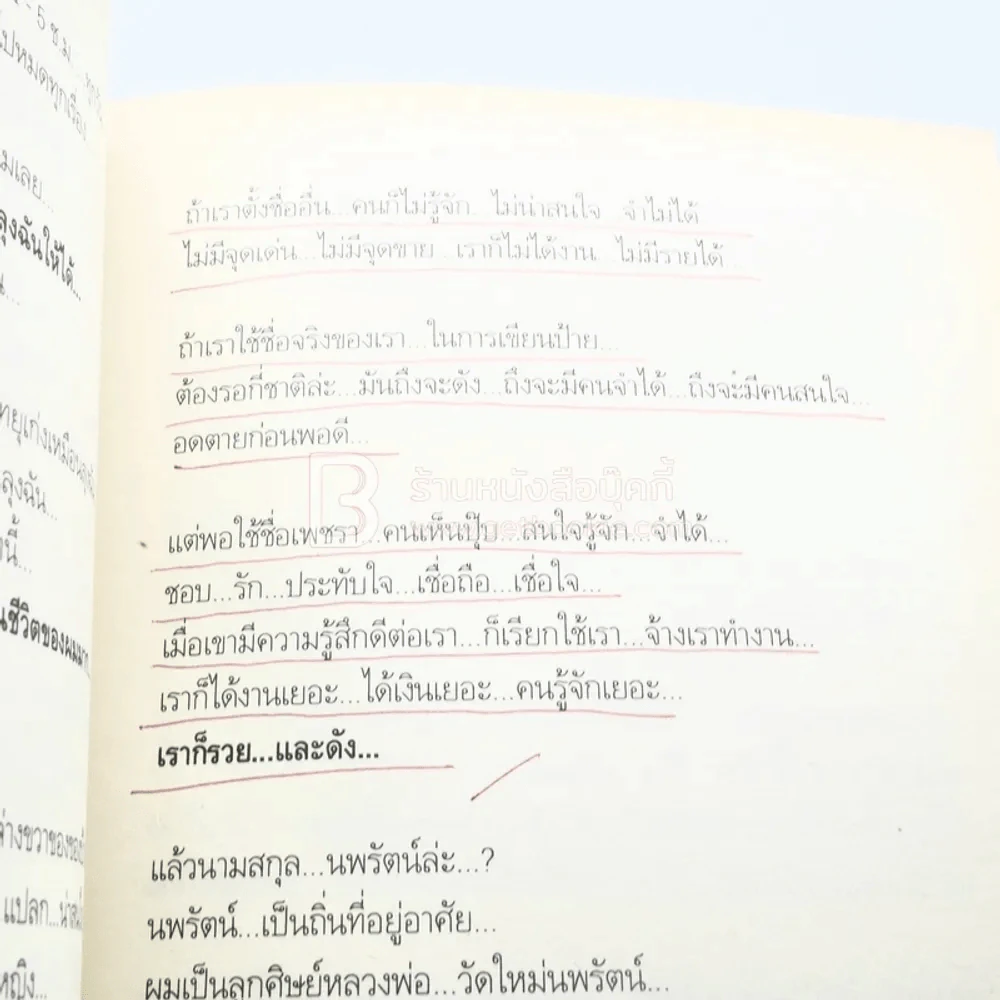 - 5 ช.ม.
ไปหมดทุกเรื่อง
มเลย...
ลุงฉันให้ได้...
ทยุเก่งเหมือนลุงฉัน
ลุงฉัน...
นี้...
นชีวิตของผมมาก
แปลก...น่าสน
หญิง...
ถ้าเราตั้งชื่ออื่น...คนก็ไม่รู้จัก...ไม่น่าสนใจ...จำไม่ได้
ไม่มีจุดเด่น...ไม่มีจุดขาย...เราก็ไม่ได้งาน...ไม่มีรายได้
ถ้าเราใช้ชื่อจริงของเรา...ในการเขียนป้าย...
ต้องรอกี่ชาติล่ะ...มันถึงจะดัง...ถึงจะมีคนจำได้...ถึงจะมีคนสนใจ...
อดตายก่อนพอดี...
ร้านหนังสือบุ๊คกี้
แต่พอใช้ชื่อเพชรา...คนเห็นปุ๊บ...สนใจรู้จัก...จำได้...
ชอบ...รัก...ประทับใจ...เชื่อถือ...เชื่อใจ...
เมื่อเขามีความรู้สึกดีต่อเรา...ก็เรียกใช้เรา...จ้างเราทำงาน...
เราก็ได้งานเยอะ...ได้เงินเยอะ...คนรู้จักเยอะ...
เราก็รวย...และดัง...
แล้วนามสกุล...นพรัตน์ล่ะ...?
นพรัตน์...เป็นถิ่นที่อยู่อาศัย...
ผมเป็นลูกศิษย์หลวงพ่อ...วัดใหม่นพรัตน์...